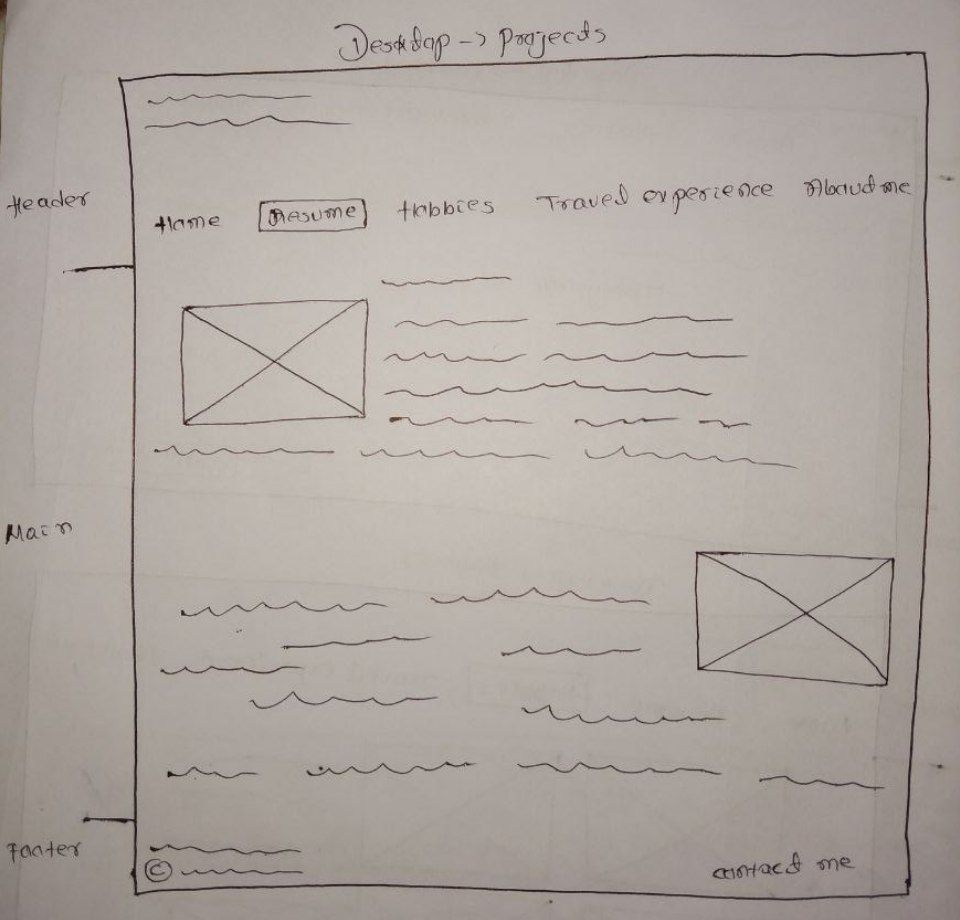 Desktop -> projects
Header
Home Resume Hobbies Travel experience About me
Main
Footer
© contact me